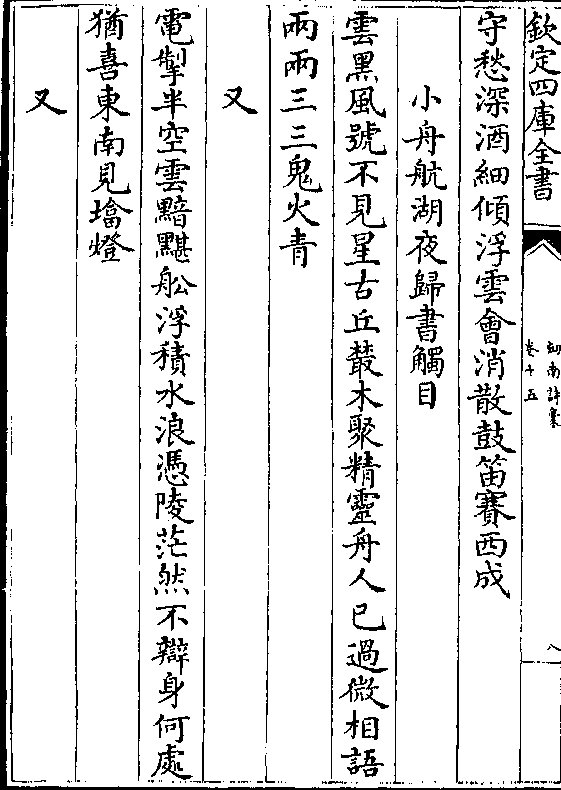 欽定四庫全書
劒南詩稾
卷十五
八
守愁深酒細傾浮雲會消散鼓笛賽西成
小舟航湖夜歸書觸目
雲黑風號不見星古丘叢木聚精靈舟人已過微相語
兩兩三三鬼火青
又
電掣半空雲黯黮舩浮積水浪憑陵茫然不辯身何處
猶喜東南見㙮燈
又